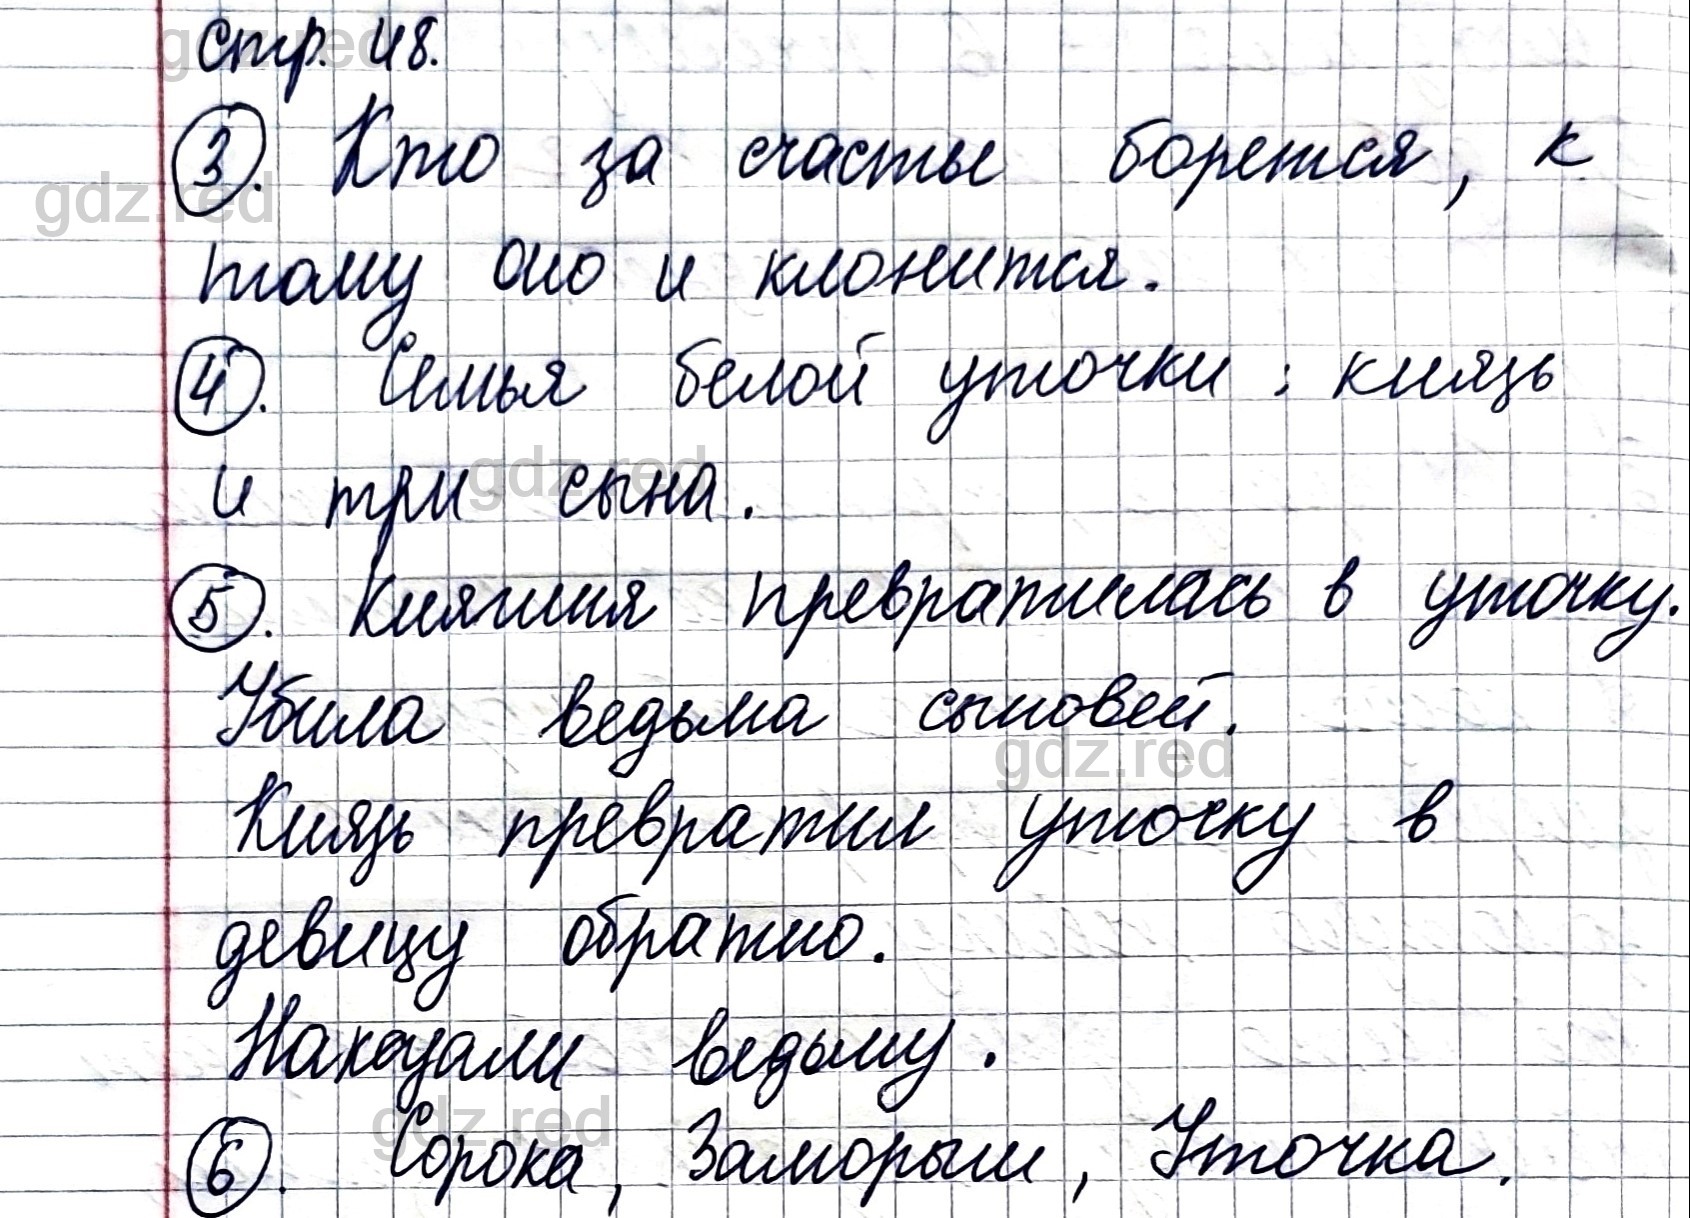 стр. 48.
3. Кто за счастье борется, к
тому оно и клонится.
4. Семья белой уточки: князь
и три сына.
5. Княгиня превратилась в уточку.
Убила ведьма сыновей.
Князь превратил уточку в
девицу обратно.
Наказали ведьму.
6. Сорока, Заморыш, Уточка.
gdz.red
gdz.red
gdz.red
gdz.red
gdz.red